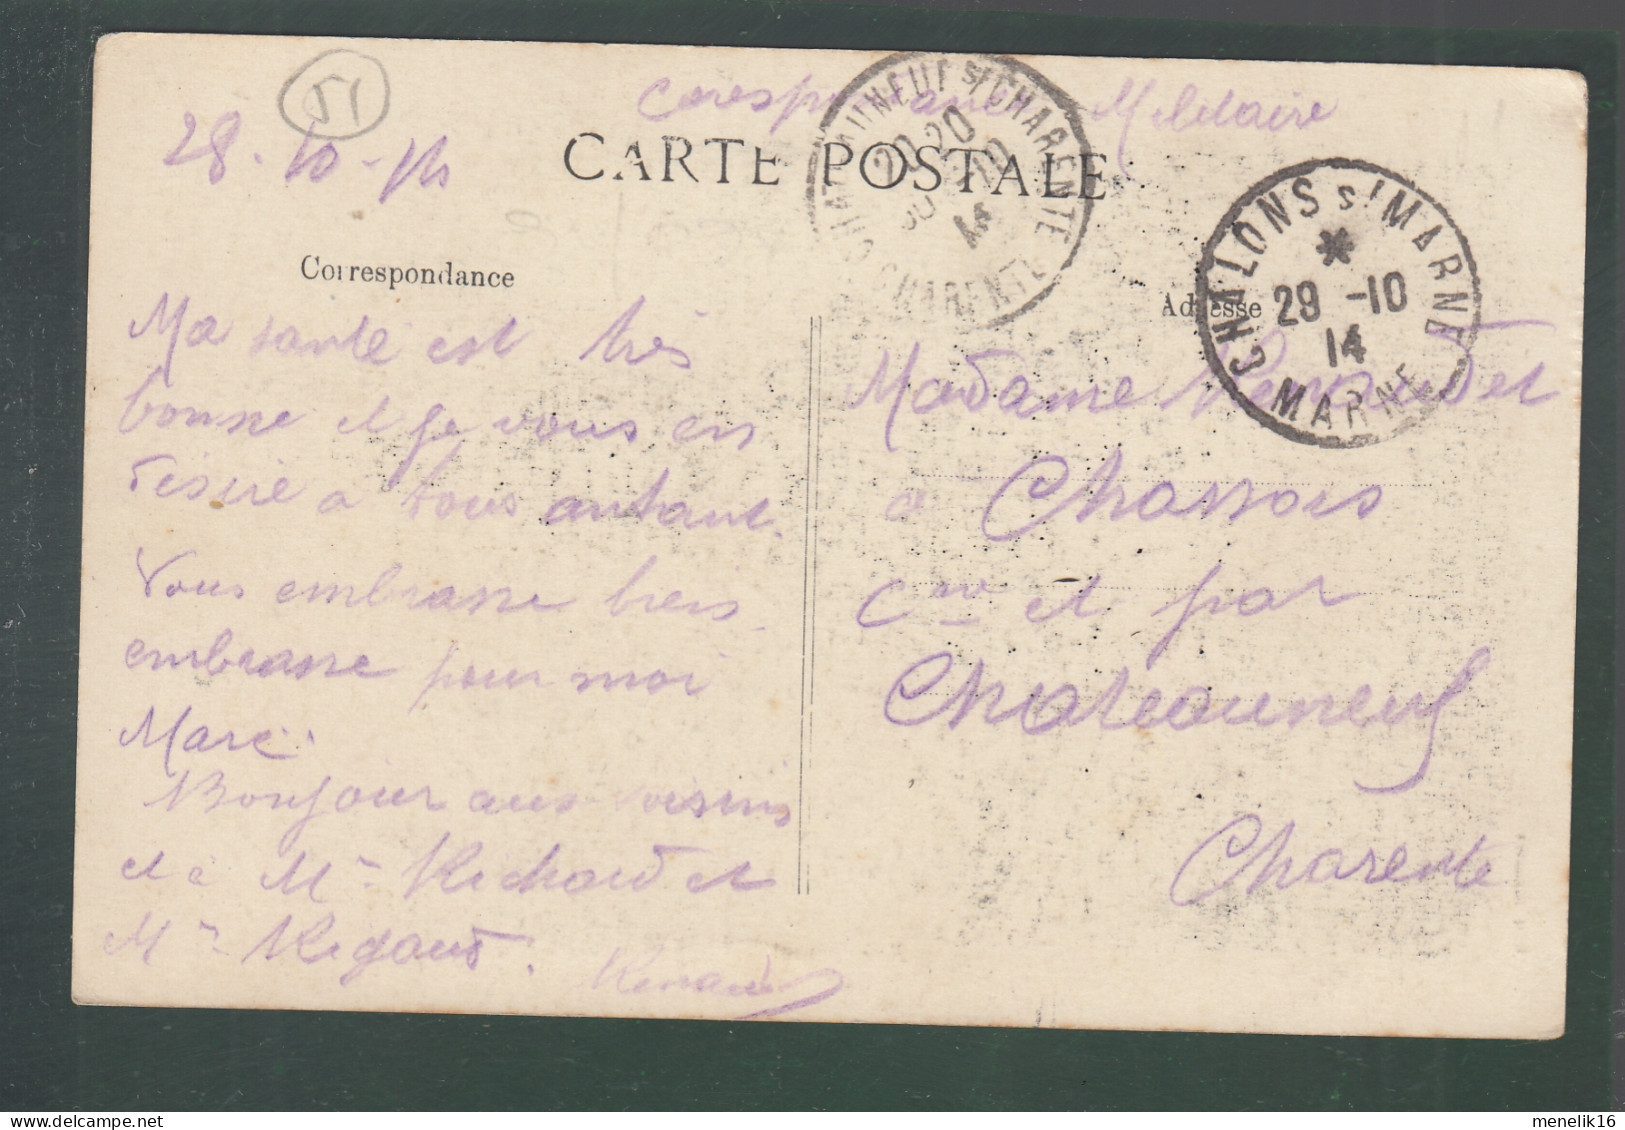 51
Corespondance Militaire
28-10-14
CARTE POSTALE
CHATEAUNEUF S/ CHARENTE
20 20
30 -10
14
CHARENTE
CHALONS S/ MARNE
29 -10
14
MARNE
Correspondance
Adresse
Ma santé est très
bonne et je vous en
désire a tous autant.
Vous embrasse bien
embrasse pour moi
Marc.
Bonjour aux voisins
et a Mr Richard et
Mr Rigaud.
Renaud
Madame et
a Chassors
Cne et par
Chateauneuf
Charente
menelik16